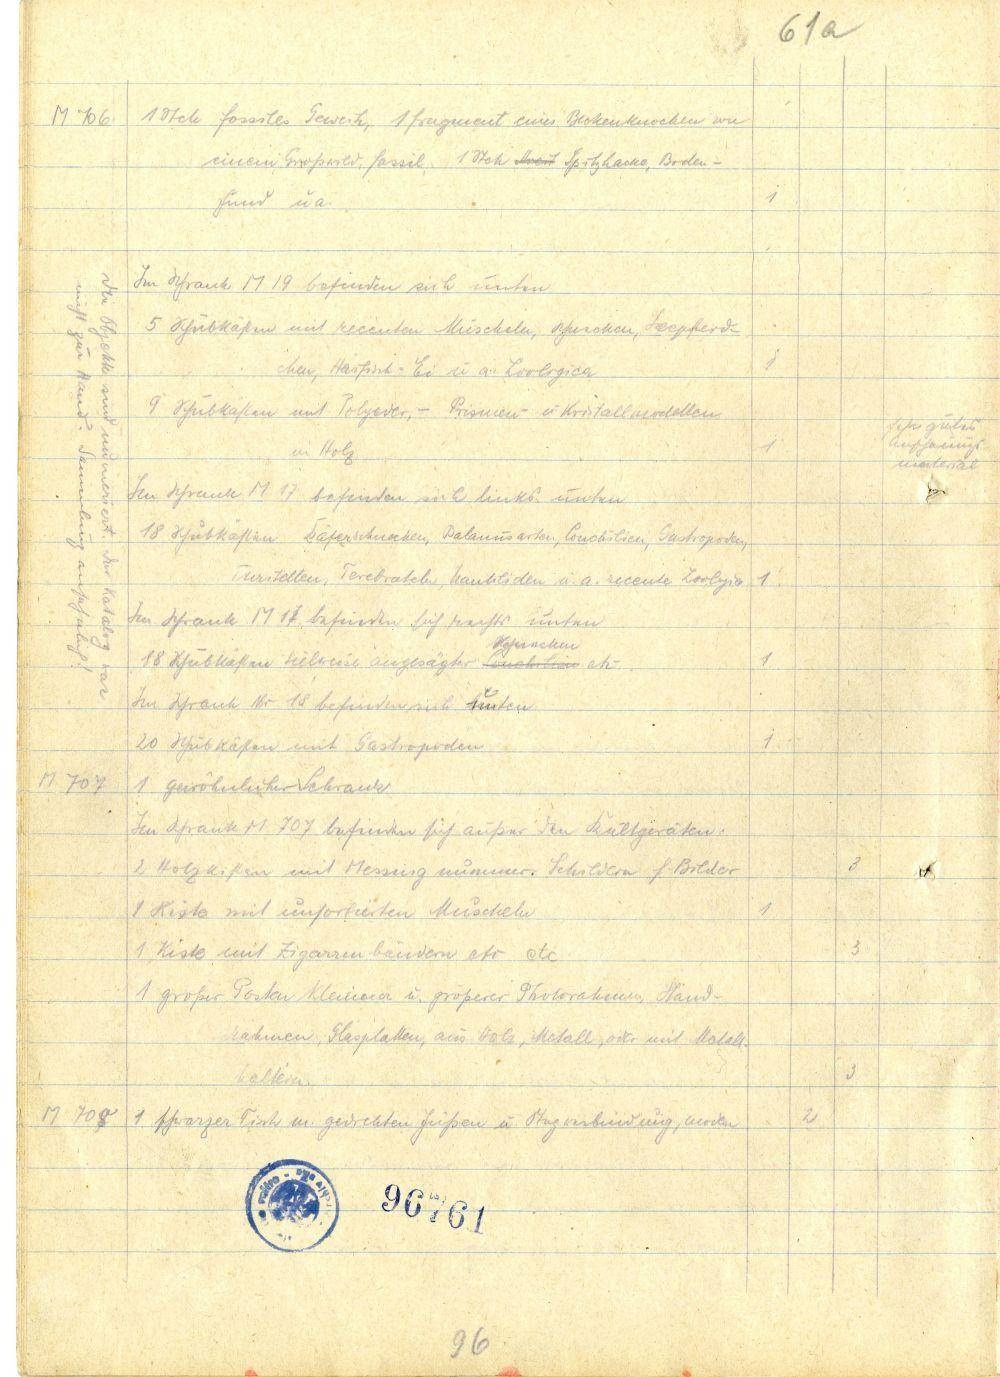 61a
M 706. 1 Stck fossiles Geweih, 1 Fragment eines Beckenknochen von
einem Großwild, fossil, 1 Stck Spitzhacke, Boden-
fund u a. 1
Im Schrank M 19 befinden sich unten
5 Schubkästen mit recenten Muscheln, Schnecken, Seepferd-
chen, Haifisch-Ei u. a. Zoologica 1
9 Schubkästen mit Polyeder,- Prismen- u Kristallmodellen
in Holz 1
Sehr gutes
Anschauungs
material
Im Schrank M 17 befinden sich links unten
18 Schubkästen Käferschnecken, Balanusarten, Conchilien, Gastropoden,
Terebrateln, Nautiliden u. a. recente Zoologica 1
Im Schrank M 17 befinden sich rechts unten
Schnecken
18 Schubkästen teilweise angesägter Conchilien etc. 1
Im Schrank Nr 18 befinden sich unten
20 Schubkästen mit Gastropoden 1
Die Objekte sind nummeriert. Der Katalog war
nicht zur Hand. Sammlung ausstellungsfähig!
M 707 1 gewöhnlicher Schrank
Im Schrank M. 707 befinden sich außer den Kultgeräten:
2 Holzkisten mit Messing nummer. Schildern f. Bilder 3
1 Kiste mit unsortierten Muscheln 1
1 Kiste mit Zigarrenbändern etc etc 3
1 großer Posten kleinerer u. größerer Photorahmen, Wand-
rahmen, Glasplatten, aus Holz, Metall, oder mit Metall-
haltern. 3
M 708 1 schwarzer Tisch m. gedrehten Füßen u Stegverbindung, modern 2
96761
96